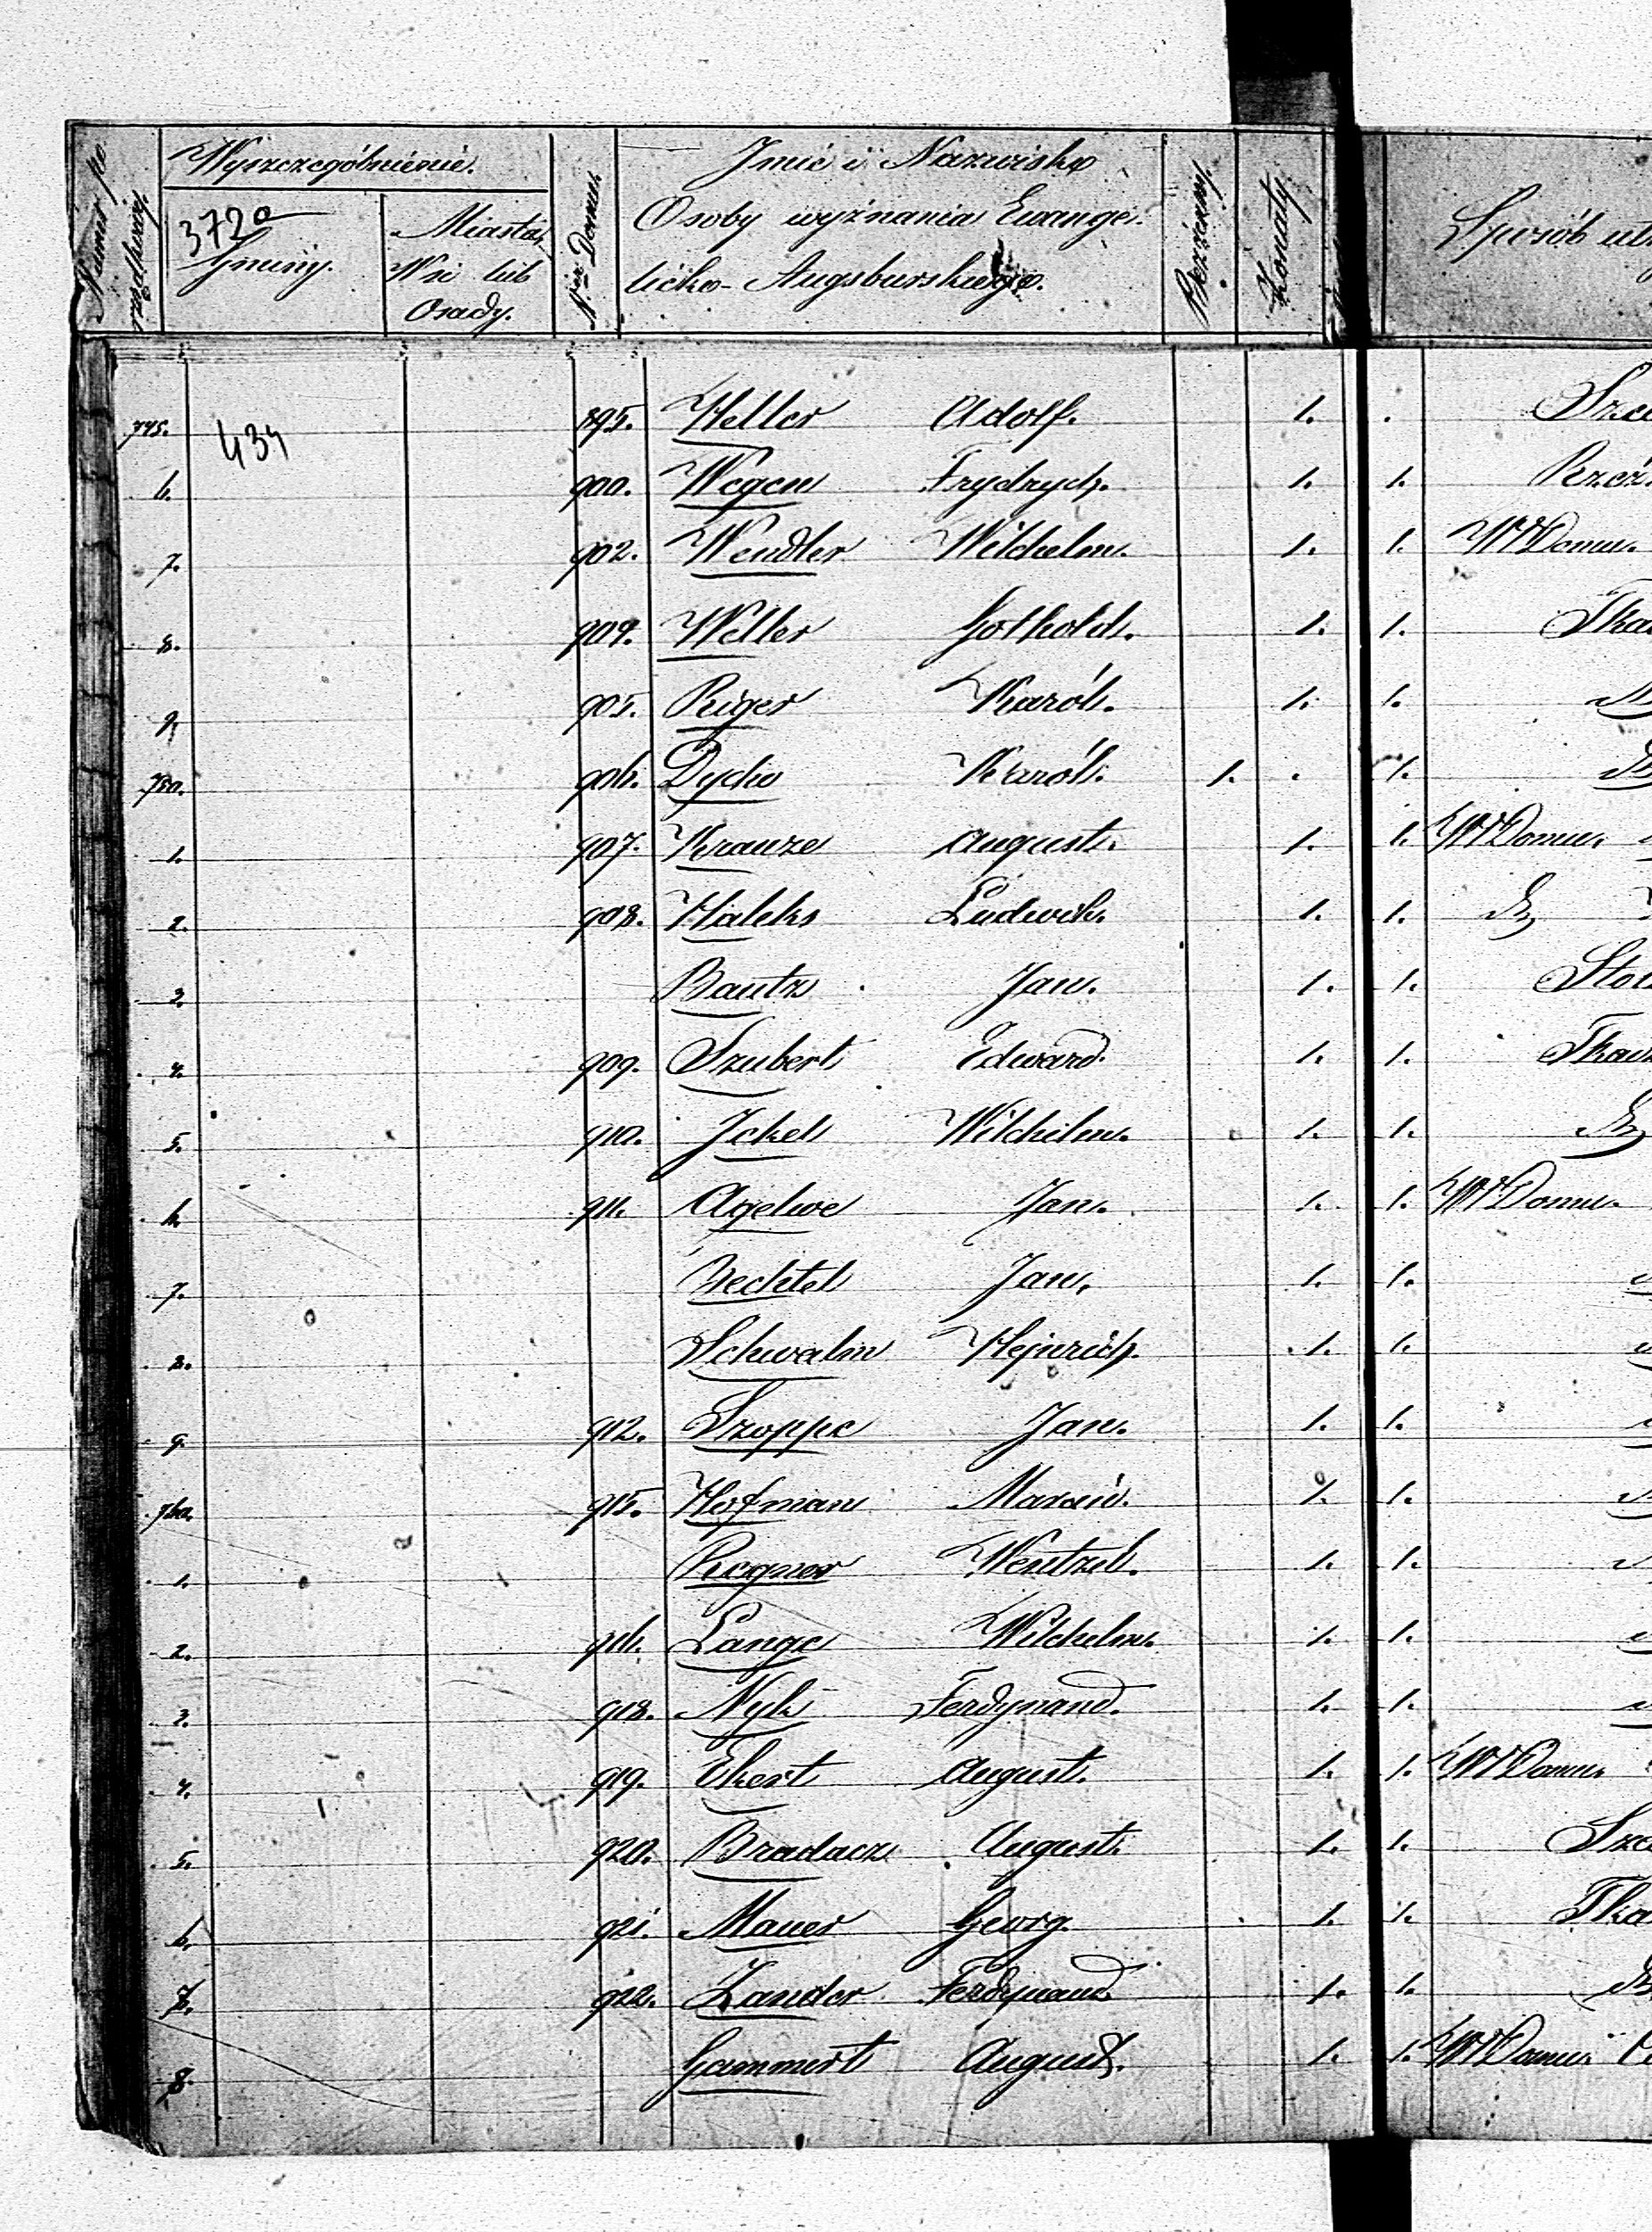 Numer po rzędkowy.
Wyszczególnienie.
372a
Gminy.
Miasta,
Wsi lub
Osady.
N.er Domu.
Imie i Nazwisko
Osoby wyznania Ewange-
licko-Augsburskiego.
Bezżenny.
Żonaty.
Sposób
434
745. 895. Heller Adolf. 1. .
6. 900. Wegen Frydrych. 1. 1.
7. 902. Wendler Wilchelm. 1. 1. W Domu.
8. 904. Weller Gothold. 1. 1.
9. 905. Riger Karól. 1. 1.
750. 906. Dycho Karól. 1. . 1.
1. 907. Krauze August. 1. 1. W Domu.
2. 908. Hialeks Ludwik. 1. 1.
3. Bautz Jan. 1. 1.
4. 909. Szubert Edward. 1. 1.
5. 910. Jckel Wilchelm. 1. 1.
6. 911. Agelwe Jan. 1. 1. W Domu.
7. Bechtel Jan. 1. 1.
8. Schwalm Hejnrich. 1. 1.
9. 912. Szoppe Jan. 1. 1.
760. 915. Hofman 1. 1.
1. Regner Wentzel. 1. 1.
2. 916. Lange Wilchelm. 1. 1.
3. 918. Nyk Ferdynand. 1. 1.
4. 919. Ekert August. 1. 1. W Domu
5. 920. Bradacz August. 1. 1.
6. 921. Mauer Georg. 1. 1.
7. 922. Zander Ferdynand. 1. 1.
8. Gammert August. 1. 1. W Domu